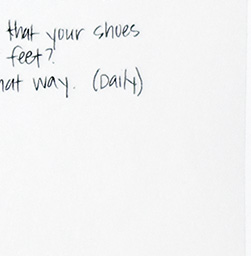 that your shoes
feet?
hat way. (Daily)